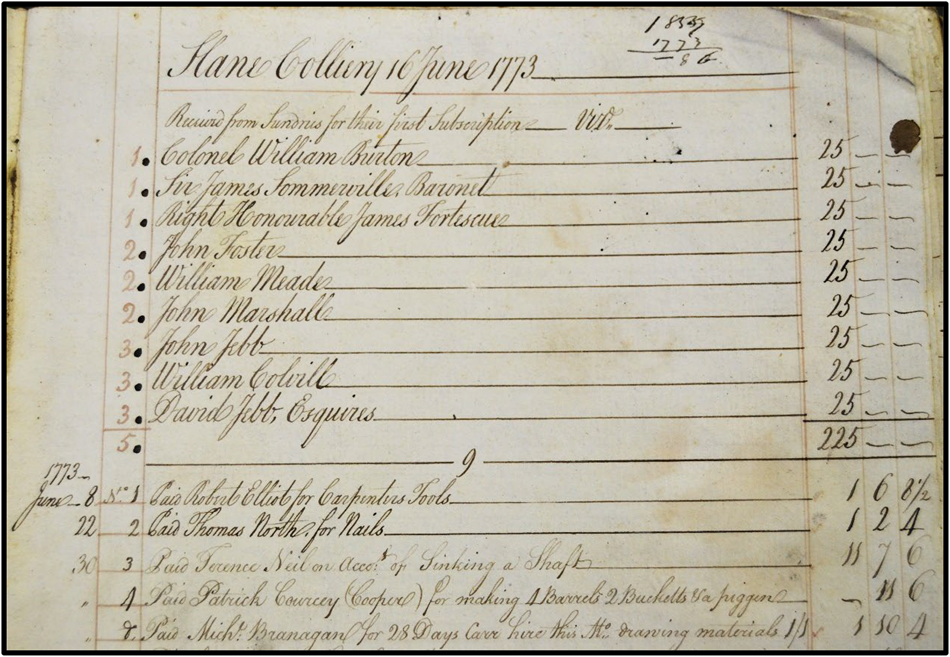 1859
1773
86
Slane Colliery 16 June 1773
Received from Sundries for their first Subscription Vizt.
1. Colonel William Burton 25 — —
1. Sir James Sommerville, Baronet 25 — —
1. Right Honourable James Fortescue 25 — —
2. John Foster 25 — —
2. William Meade 25 — —
2. John Marshall 25 — —
3. John Jebb 25 — —
3. William Colvill 25 — —
3. David Jebb, Esquires 25 — —
5. 225 — —
9
1773
June 8 No. 1 Paid Robert Elliot for Carpenters Tools 1 6 8 1/2
22 2 Paid Thomas North for Nails 1 2 4
30 3 Paid Terence Neil on Acco.t of Sinking a Shaft 11 7 6
" 4 Paid Patrick Courcey (Cooper) for making 4 Barrels 2 Bucketts & a piggen — 11 6
" Paid Michl. Branagan for 28 Days Carr hire this Mo. drawing materials 1/1 1 10 4